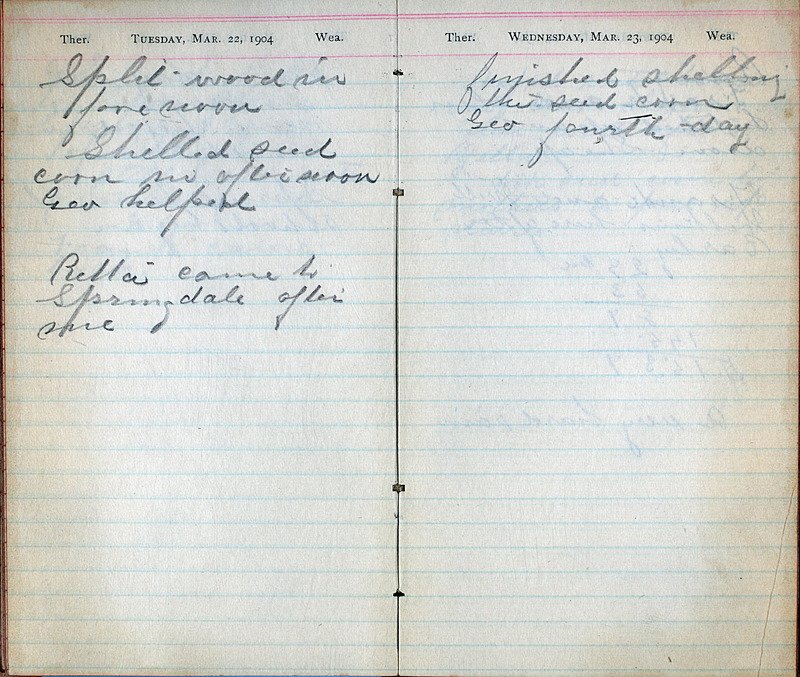 Ther. Tuesday, Mar. 22, 1904 Wea.
Split wood in
fore noon
Shelled seed
corn in after noon
Geo helped
Retta came to
Springdale after
me
Ther. Wednesday, Mar. 23, 1904 Wea.
finished shelling
the seed corn
Geo fourth day